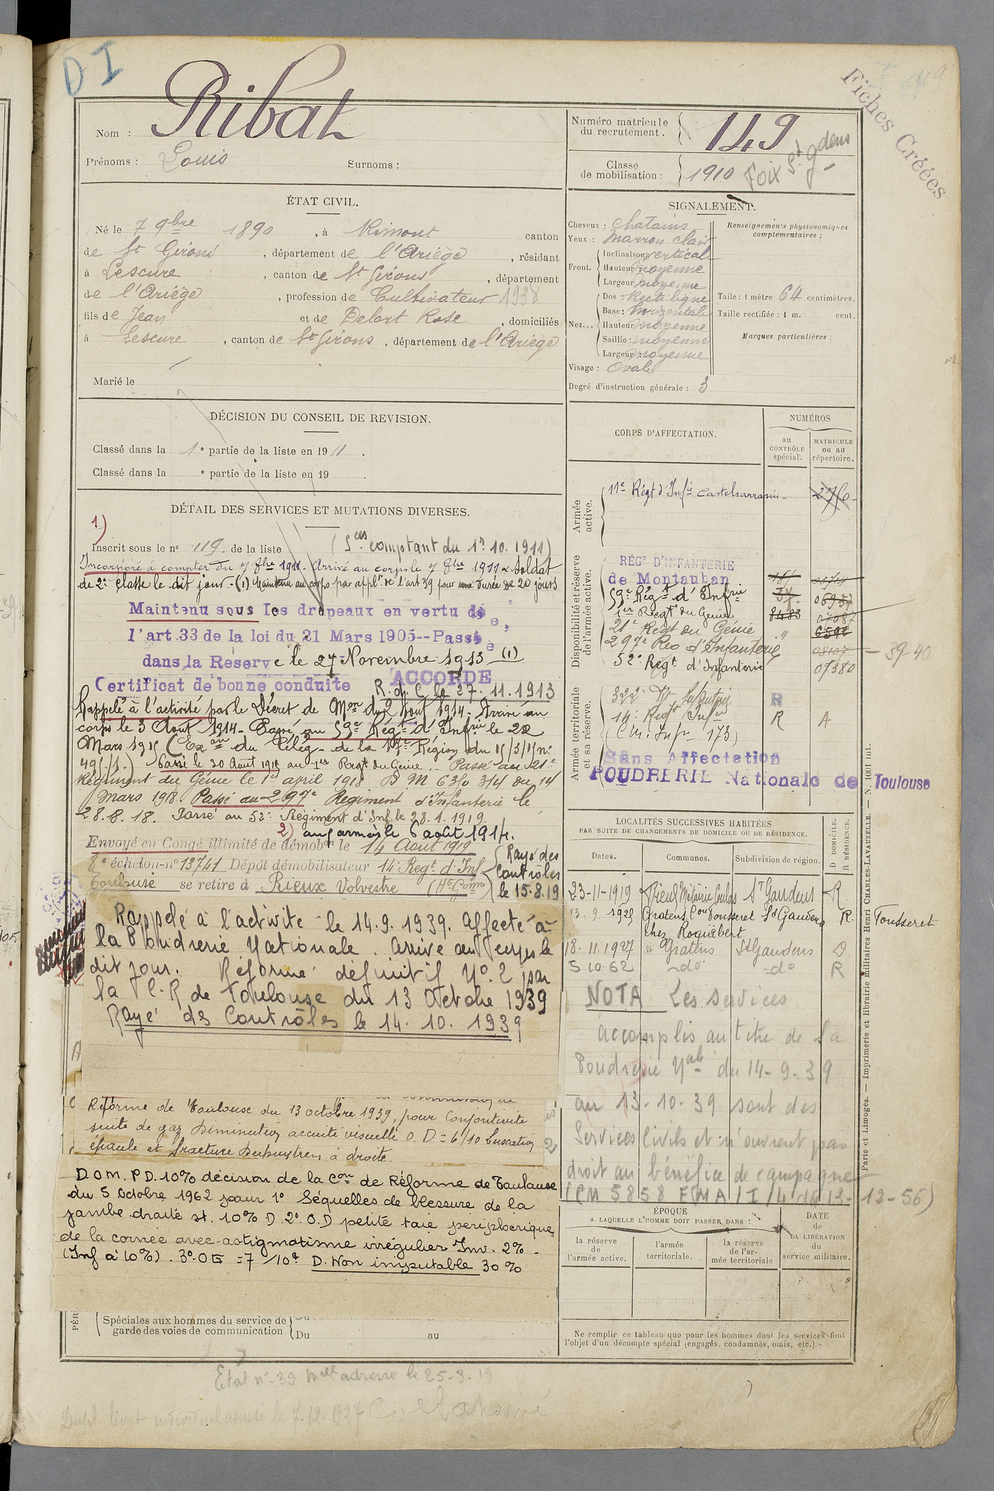 D I
Fiches Créées
Nom : Ribat
Prénoms : Louis Surnoms :
Numéro matricule du recrutement. 149
Classe de mobilisation : 1910 Foix St gdens
ÉTAT CIVIL.
Né le 7 9bre 1890, à Rimont canton
de St Girons, département de l'Ariège, résidant
à Lescure, canton de St Girons, département
de l'Ariège, profession de Cultivateur 1938
fils de Jean et de Delort Rose, domiciliés
à Lescure, canton de St Girons, département de l'Ariège
Marié le
SIGNALEMENT.
Cheveux : chatains
Yeux : marron clair
Front. Inclinaison verticale
Hauteur moyenne
Largeur moyenne
Nez... Dos : Rectiligne
Base : horizontale
Hauteur : moyenne
Saillie : moyenne
Largeur moyenne
Visage : Ovale
Degré d'instruction générale : 3
Renseignements physionomiques complémentaires :
Taille : 1 mètre 64 centimètres.
Taille rectifiée : 1 m. cent.
Marques particulières :
DÉCISION DU CONSEIL DE REVISION.
Classé dans la 1e partie de la liste en 1911.
Classé dans la e partie de la liste en 19 .
DÉTAIL DES SERVICES ET MUTATIONS DIVERSES.
1)
Inscrit sous le no 119. de la liste (Sces comptant du 1er. 10. 1911)
Incorporé à compter du 7 8bre 1911. Arrivé au corps le 7 8bre 1911 & soldat
de 2e classe le dit jour. (1) Maintenu au corps par appl. de l'art 39 pour une durée de 20 jours
Maintenu sous les drapeaux en vertu de
l'art.33 de la loi du 21 Mars 1905--Passé
dans la Réserve le 27 Novembre 1913 (1)
Certificat de bonne conduite ACCORDÉ
R. d. C le 27. 11. 1913
Rappelé à l'activité par le Décret de Mon du 1 Aout 1914. Arrivé au
corps le 3 Aout 1914. Passé au 59e Rég. d'Infrie le 22
Mars 1915
Passé le 20 Août 1915 au 1er Regt du Génie. Passé au 21e
Régiment du Génie le 1er avril 1918 D M 6350 3/4 du 14
Mars 1918. Passé au 297e Régiment d'Infanterie le
28.8.18. Passé au 52e Régiment d'Inf le 28.1.1919.
2) aux armées le 6 août 1914.
Envoyé en Congé illimité de démobon le 14 Aout 1919
8e échelon-no 13741 Dépôt démobilisateur 14e Regt d'Inf
Toulouse se retire à Rieux Volvestre (Hte Gonne)
Rayé des Controles le 15.8.19
Rappelé à l'activité le 14.9.1939. Affecté à
la Poudrerie Nationale. Arrivé au corps le
dit jour. Réformé définitif No. 2 par
la C.R de Toulouse du 13 Octobre 1939
Rayé des Contrôles le 14. 10. 1939
Réforme de Toulouse du 13 octobre 1939, pour Conjonctivite
suite de gaz Diminution acuité visuelle O. D = 6/10 Luxation
épaule et fracture Dupuytren à droite.
D.O.M. P.D. 10% décision de la Con de Réforme de Toulouse
du 5 Octobre 1962 pour 1o Séquelles de blessure de la
jambe droite st. 10% D. 2o. O.D petite taie périphérique
de la cornée avec astigmatisme irrégulier Inv. 2% -
(Inf à 10%). 3o OG = 7/10e D. Non imputable 30%
Spéciales aux hommes du service de garde des voies de communication
Du au
CORPS D'AFFECTATION.
NUMÉROS
au CONTRÔLE spécial.
MATRICULE ou au répertoire.
Armée active.
11e Régt d'Infie Castelsarrasin
Disponibilité et réserve de l'armée active.
RÉGT D'INFANTERIE
de Montauban
59e Régt d'Infrie
1er Régt du Génie
21e Regt du Génie
297e Reg d'Infanterie
52e Régt d'Infanterie 07380
39-40
Armée territoriale et sa réserve.
322e Rt Infanterie R
14e Regt Infie R A
(Cir. Infie 173)
Sans Affectation
POUDRERIE Nationale de Toulouse
LOCALITÉS SUCCESSIVES HABITÉES
PAR SUITE DE CHANGEMENTS DE DOMICILE OU DE RÉSIDENCE.
Dates. Communes. Subdivision de région. D DOMICILE. R RÉSIDENCE.
23-11-1919 Rieux St Gaudens R
13. 9. 1926 Gratens Con Fousseret St Gaudens R Fousseret
chez Roquebert
18. 11. 1927 " Gratens St Gaudens D
5.10.62 -do- -do- R
NOTA Les services
accomplis au titre de la
Poudrerie Nale du 14-9-39
au 13-10-39 sont des
Services Civils et n'ouvrent pas
droit au bénéfice de campagne
(CM 5858 FMA/I/4 du 13-12-56)
ÉPOQUE
A LAQUELLE L'HOMME DOIT PASSER DANS :
la réserve de l'armée active.
l'armée territoriale.
la réserve de l'armée territoriale
DATE de LA LIBÉRATION du service militaire.
Ne remplir ce tableau que pour les hommes dont les services font
l'objet d'un décompte spécial (engagés, condamnés, omis, etc.)
Paris et Limoges. — Imprimerie et librairie militaires Henri CHARLES-LAVAUZELLE.
État no 39 Melle adresse le 25-3-19
Dupl. livret individuel le 7.12.1927